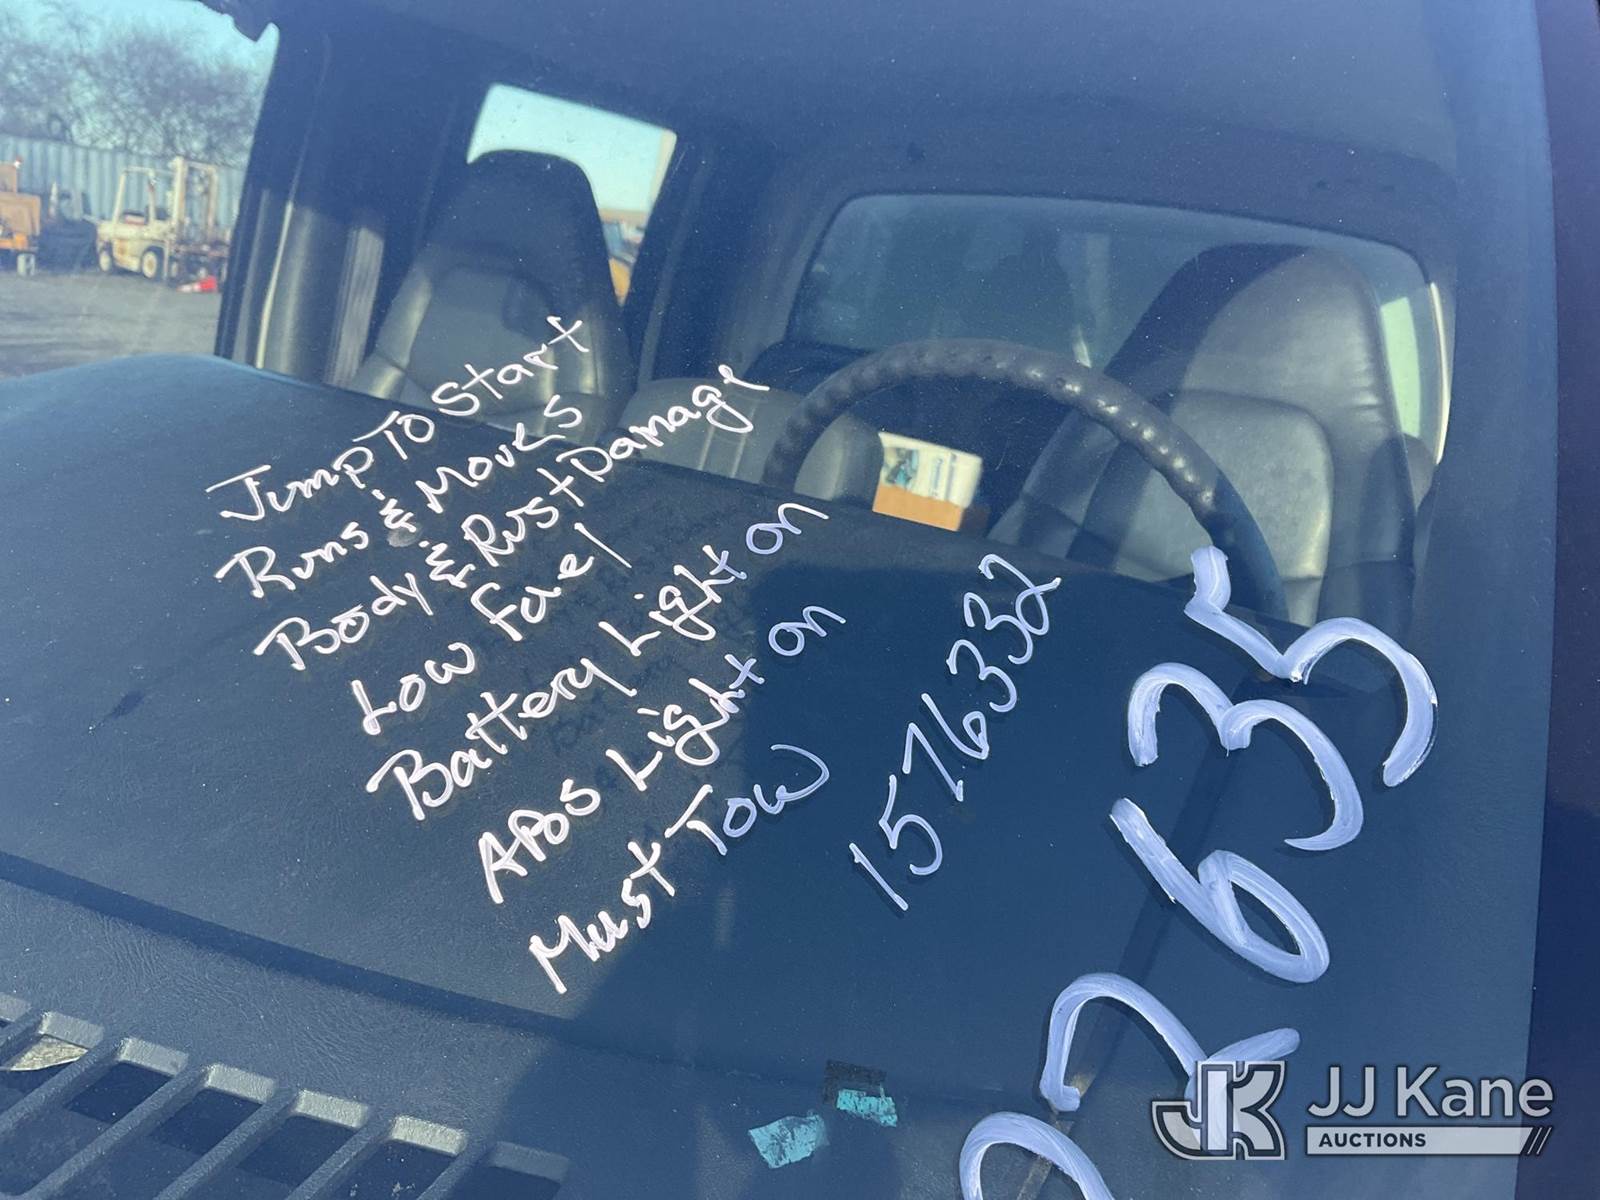 Jump To Start
Runs & Moves
Body & Rust Damage
Low Fuel
Battery Light on
ABS Light on
Must Tow
1576332
2635
JJ Kane
AUCTIONS